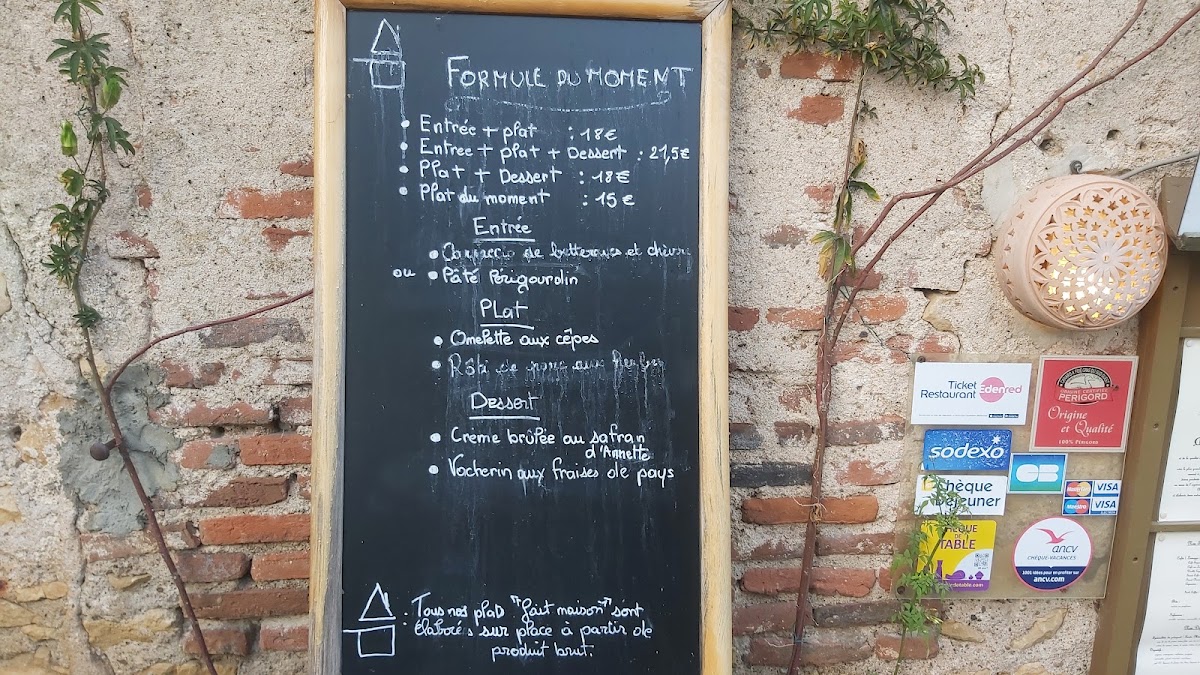 FORMULE DU MOMENT
• Entrée + plat : 18€
• Entree + plat + Dessert : 21,5€
• Plat + Dessert : 18€
• Plat du moment : 15€
Entrée
• Carpaccio de betteraves et chèvre
ou • Pâté Périgourdin
PLat
• Omelette aux cêpes
• Rôti de porc aux
Dessert
• Creme brûlée au safran
d'Annette
• Vacherin aux fraises de pays
: Tous nos plaD "fait maison" sont
élaborés sur place à partir de
produit brut.
Ticket
Restaurant
Edenred
PERIGORD
Origine
et Qualité
100% PÉRIGORD
sodexo
CB
chèque
Déjeuner
MasterCard VISA
Maestro VISA
CHÈQUE
DE
TABLE
ancv
CHÈQUE-VACANCES
1001 idées pour en profiter sur
ancv.com